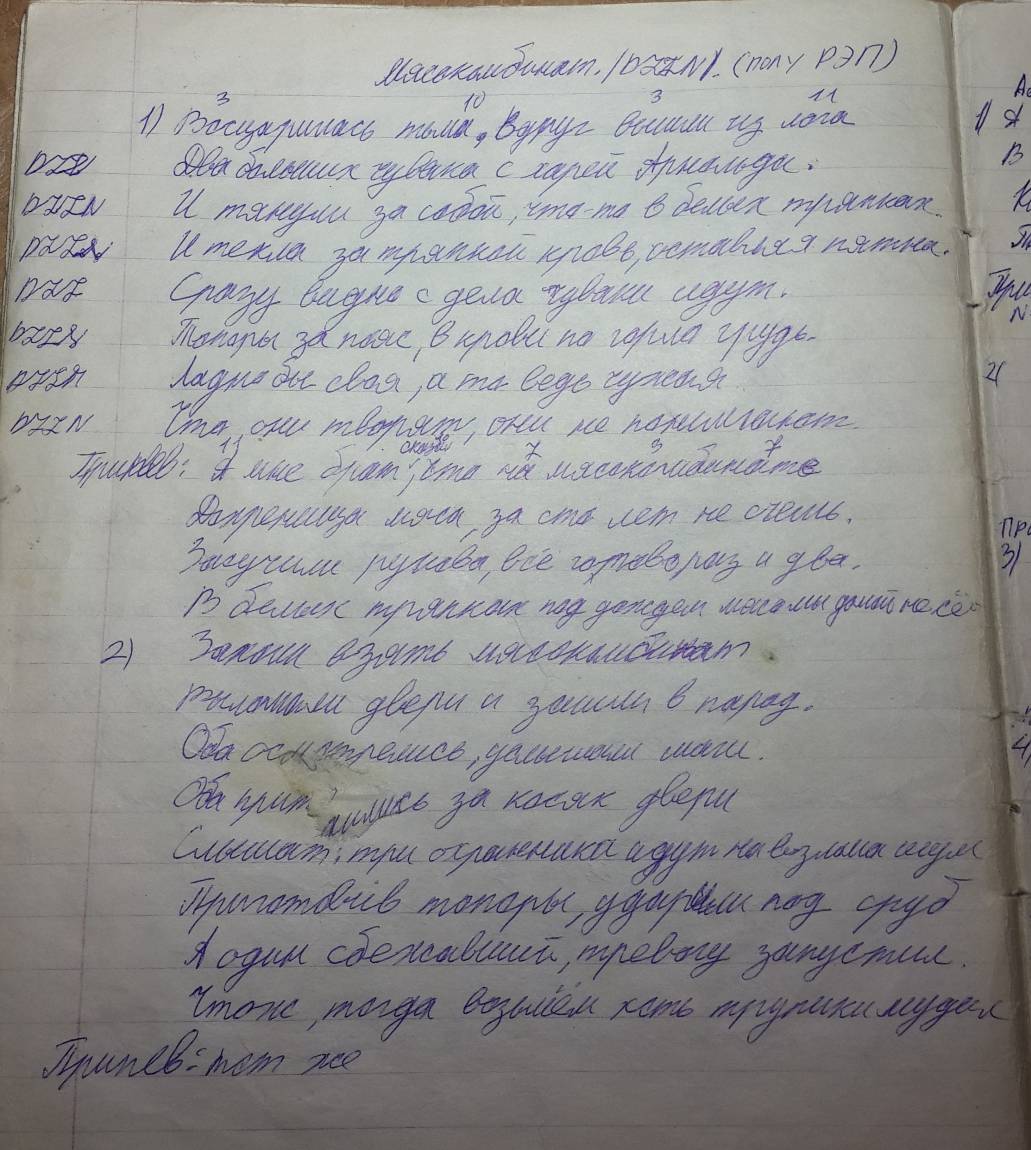 Мясокомбинат. /DZZN/. (полу РЭП)
3 10 3 11
1) Воцарилась тьма, вдруг вышли из лога
DZZN Два больших чувака с харей Арнольда.
DZZN И тянули за собой, что-то в белых тряпках.
DZZN И текла за тряпкой кровь, оставляя пятна.
DZZ Сразу видно с дела чуваки идут.
DZZN Топоры за пояс, в крови по горла грудь.
DZZN Ладно бы своя, а то ведь чужая
DZZN Что они творят, они не понимают.
11 сказал 7 3 7
Припев: А мне брат, что на мясокомбинате
Дохренища мяса, за сто лет не съешь.
Засучили рукова, всё готово раз и два.
В белых тряпках под дождем мясо мы домой несём
2) Зашли взять мясокомбинат
Выломали двери и зашли в парад.
Оба осмотрелись, услышали шаги.
Оба притаились за косяк двери
Слышат: три охранника идут на взлома шум
Приготовив топоры, ударили под сруб
А один сбежавший, тревогу запустил.
Чтож, тогда возьмём хоть трупики мудил
Припев: тот же
1) А
В
При
2)
3)
4)